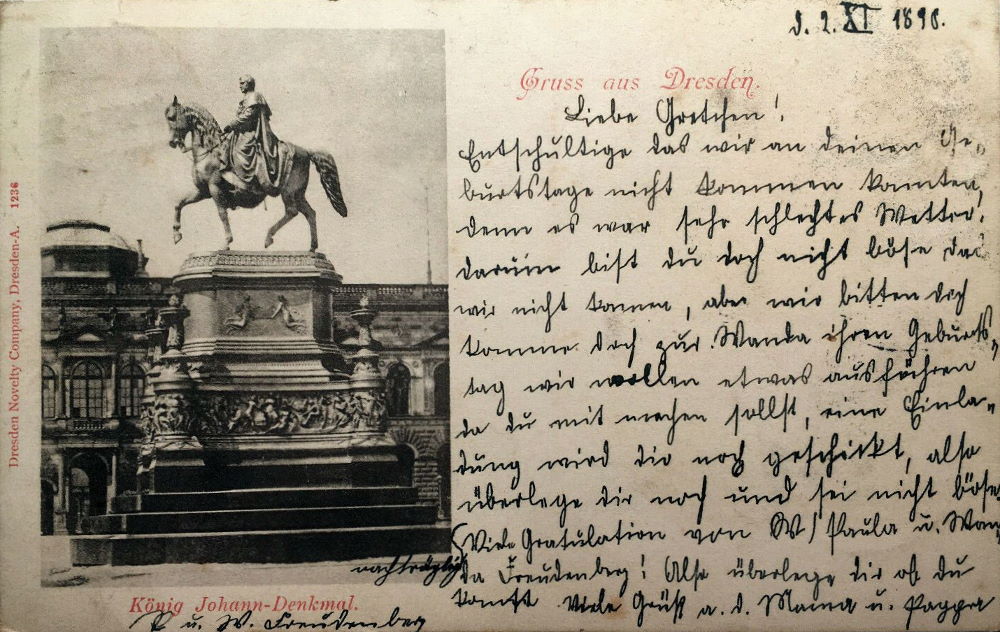 d. 2. XI 1898.
Gruss aus Dresden.
Liebe Gretchen!
Entschultige das wir an deinen Ge-
burtstage nicht kommen konnten,
denn es war sehr schlechtes Wetter.
darum bist du doch nicht böse das
wir nicht kamen, aber wir bitten dich
komme doch zur Wanda ihren Geburts-
tag wir wollen etwas aufführen
da du mit machen sollst, eine Einla-
dung wird dir noch geschickt, also
überlege dir noch und sei nicht böse
(Viele Gratulation von W/ Paula u. Wan-
nachträglich
da Freudenberg! Also überlege dir ob du
komst Viele Grüß a. d. Mama u. Pappa
P u. W. Freudenberg
König Johann-Denkmal.
Dresden Novelty Company, Dresden-A. 1236